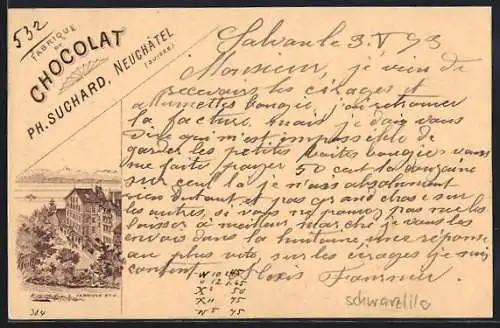 532
FABRIQUE
DE
CHOCOLAT
PH. SUCHARD, NEUCHÂTEL
(SUISSE)
Salvan le 3. V 93
Monsieur, je vien de
recevoir les cirages et
allumettes bougie, j'ai retourner
la facture. mais je dois vous
dire qui m'est impossible de
garder les petites boites bougies vous
me faites payer 50 cent la douzaine
sur ceul la je n'ais absolument
rien du tout et pas grand chose sur
les autres, si vous ne pouvez pas me les
laisser à meilleur marché je vous les
envois dans la huitaine, une réponse
au plus vite, sur les cirages je suis
content
N 10
12
X 50
45
N 5 45
FABRIQUE
304
schwarzlila